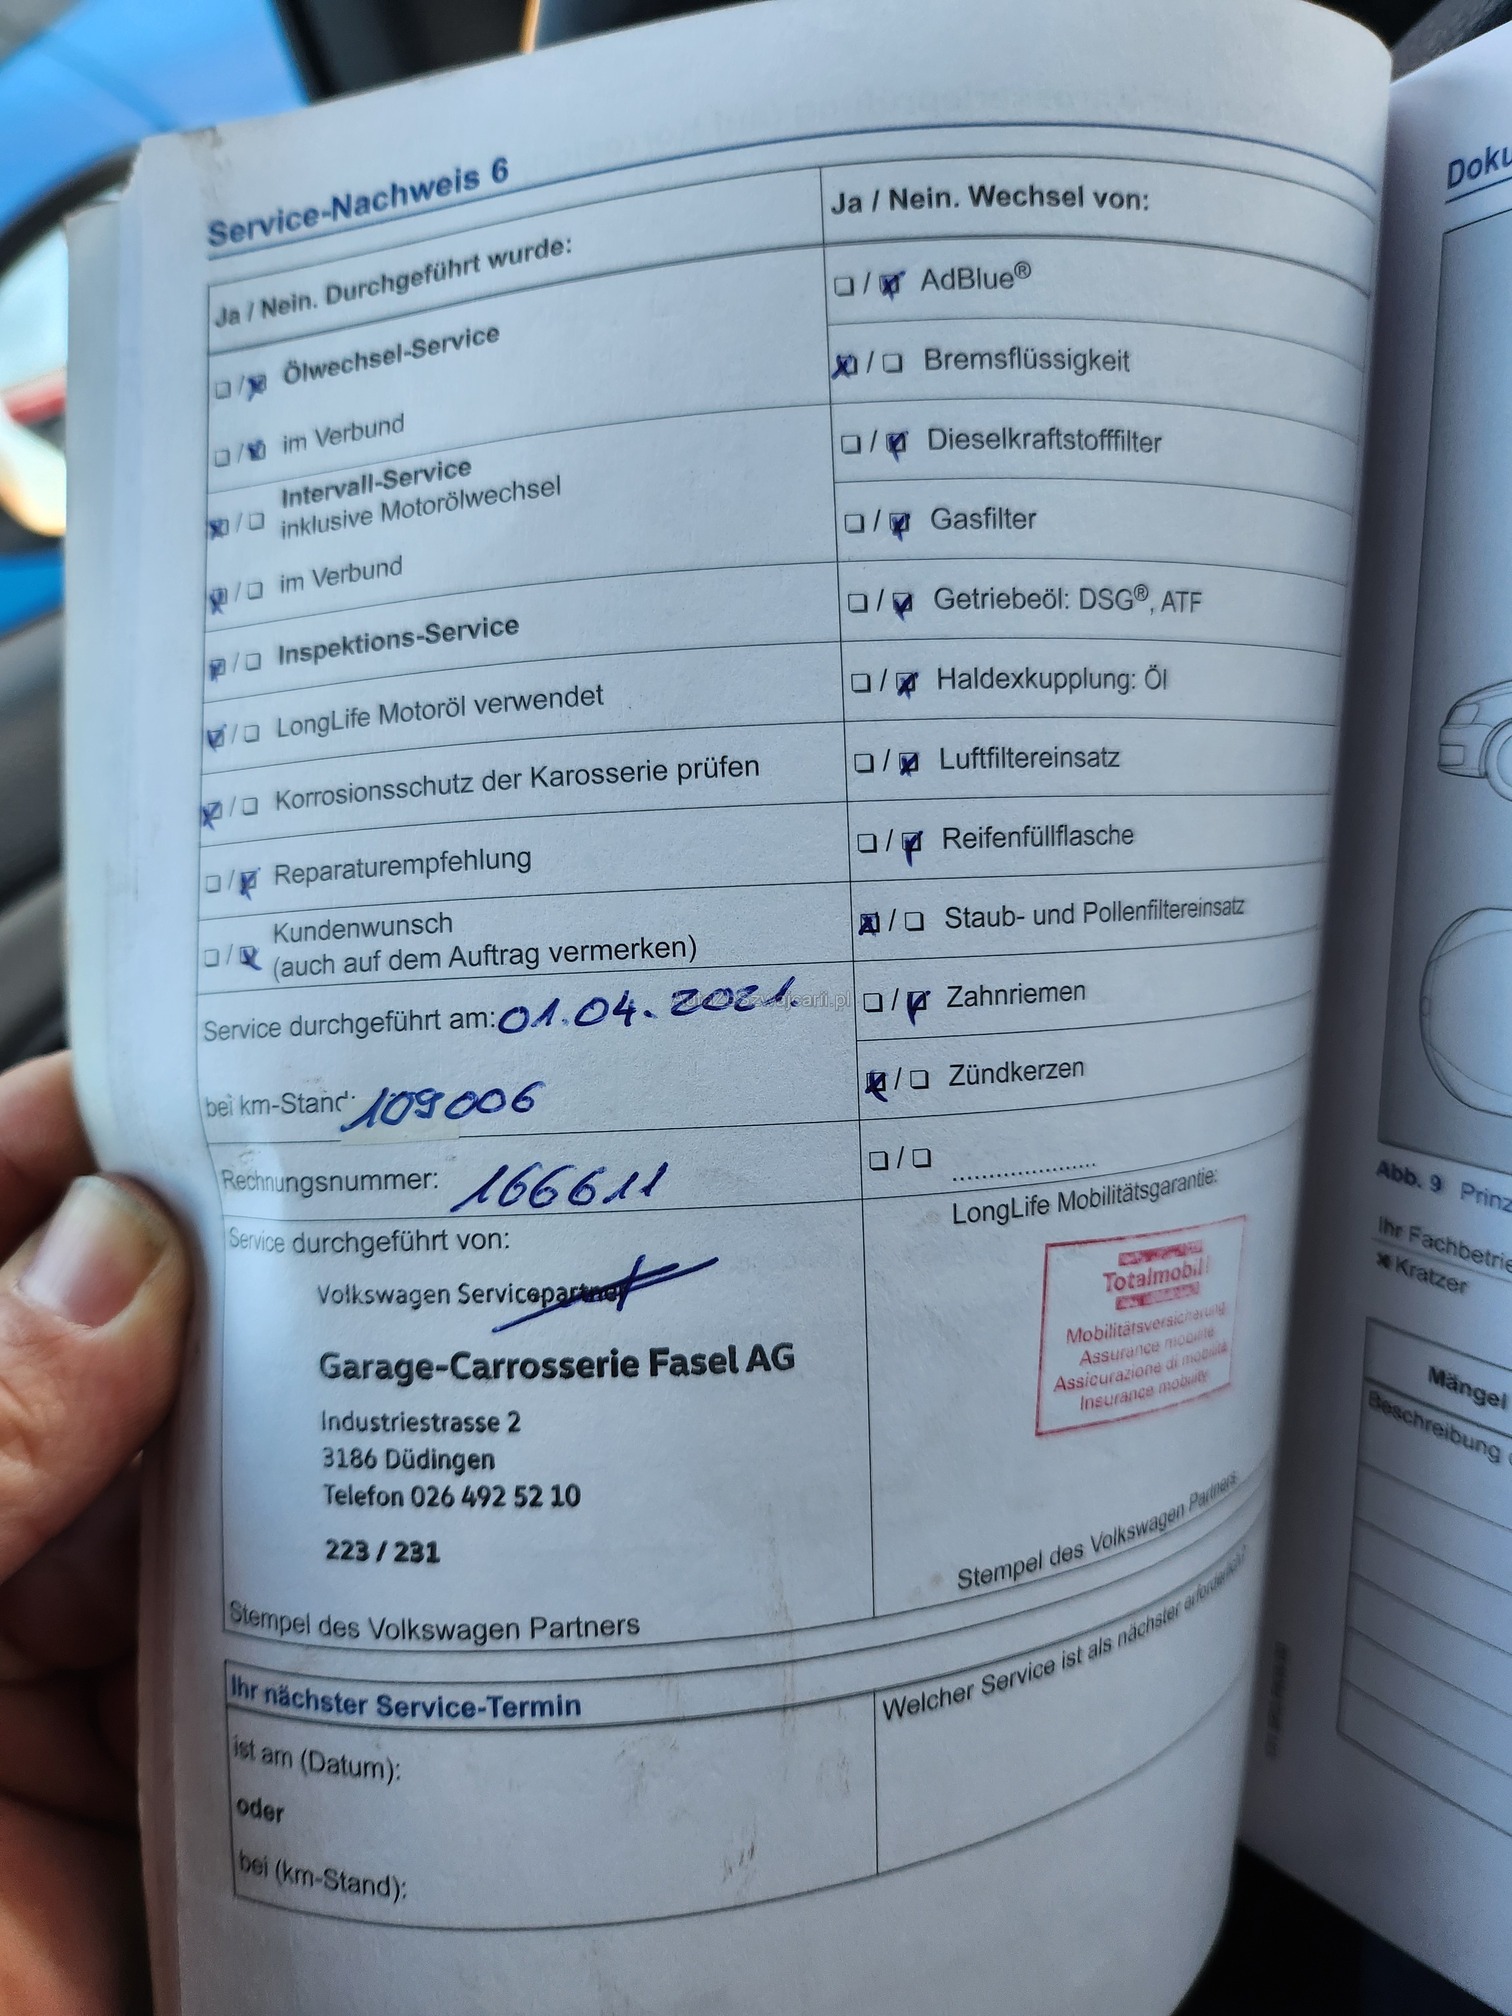 Service-Nachweis 6
Ja / Nein. Durchgeführt wurde:
Ölwechsel-Service
im Verbund
Intervall-Service
inklusive Motorölwechsel
im Verbund
Inspektions-Service
LongLife Motoröl verwendet
Korrosionsschutz der Karosserie prüfen
Reparaturempfehlung
Kundenwunsch
(auch auf dem Auftrag vermerken)
Service durchgeführt am: 01.04.2021.
bei km-Stand: 109006
Rechnungsnummer: 166611
Service durchgeführt von:
Volkswagen Servicepartner
Garage-Carrosserie Fasel AG
Industriestrasse 2
3186 Düdingen
Telefon 026 492 52 10
223 / 231
Stempel des Volkswagen Partners
Ja / Nein. Wechsel von:
AdBlue®
Bremsflüssigkeit
Dieselkraftstofffilter
Gasfilter
Getriebeöl: DSG®, ATF
Haldexkupplung: Öl
Luftfiltereinsatz
Reifenfüllflasche
Staub- und Pollenfiltereinsatz
Zahnriemen
Zündkerzen
LongLife Mobilitätsgarantie:
Totalmobil!
Mobilitätsversicherung
Assurance mobilité
Assicurazione di mobilità
Insurance mobility
Stempel des Volkswagen Partners
Ihr nächster Service-Termin
ist am (Datum):
oder
bei (km-Stand):
Welcher Service ist als nächster erforderlich?
AutoZeSzwajcarii.pl
Doku
Abb. 9 Prinz
Ihr Fachbetrie
Kratzer
Mängel
Beschreibung